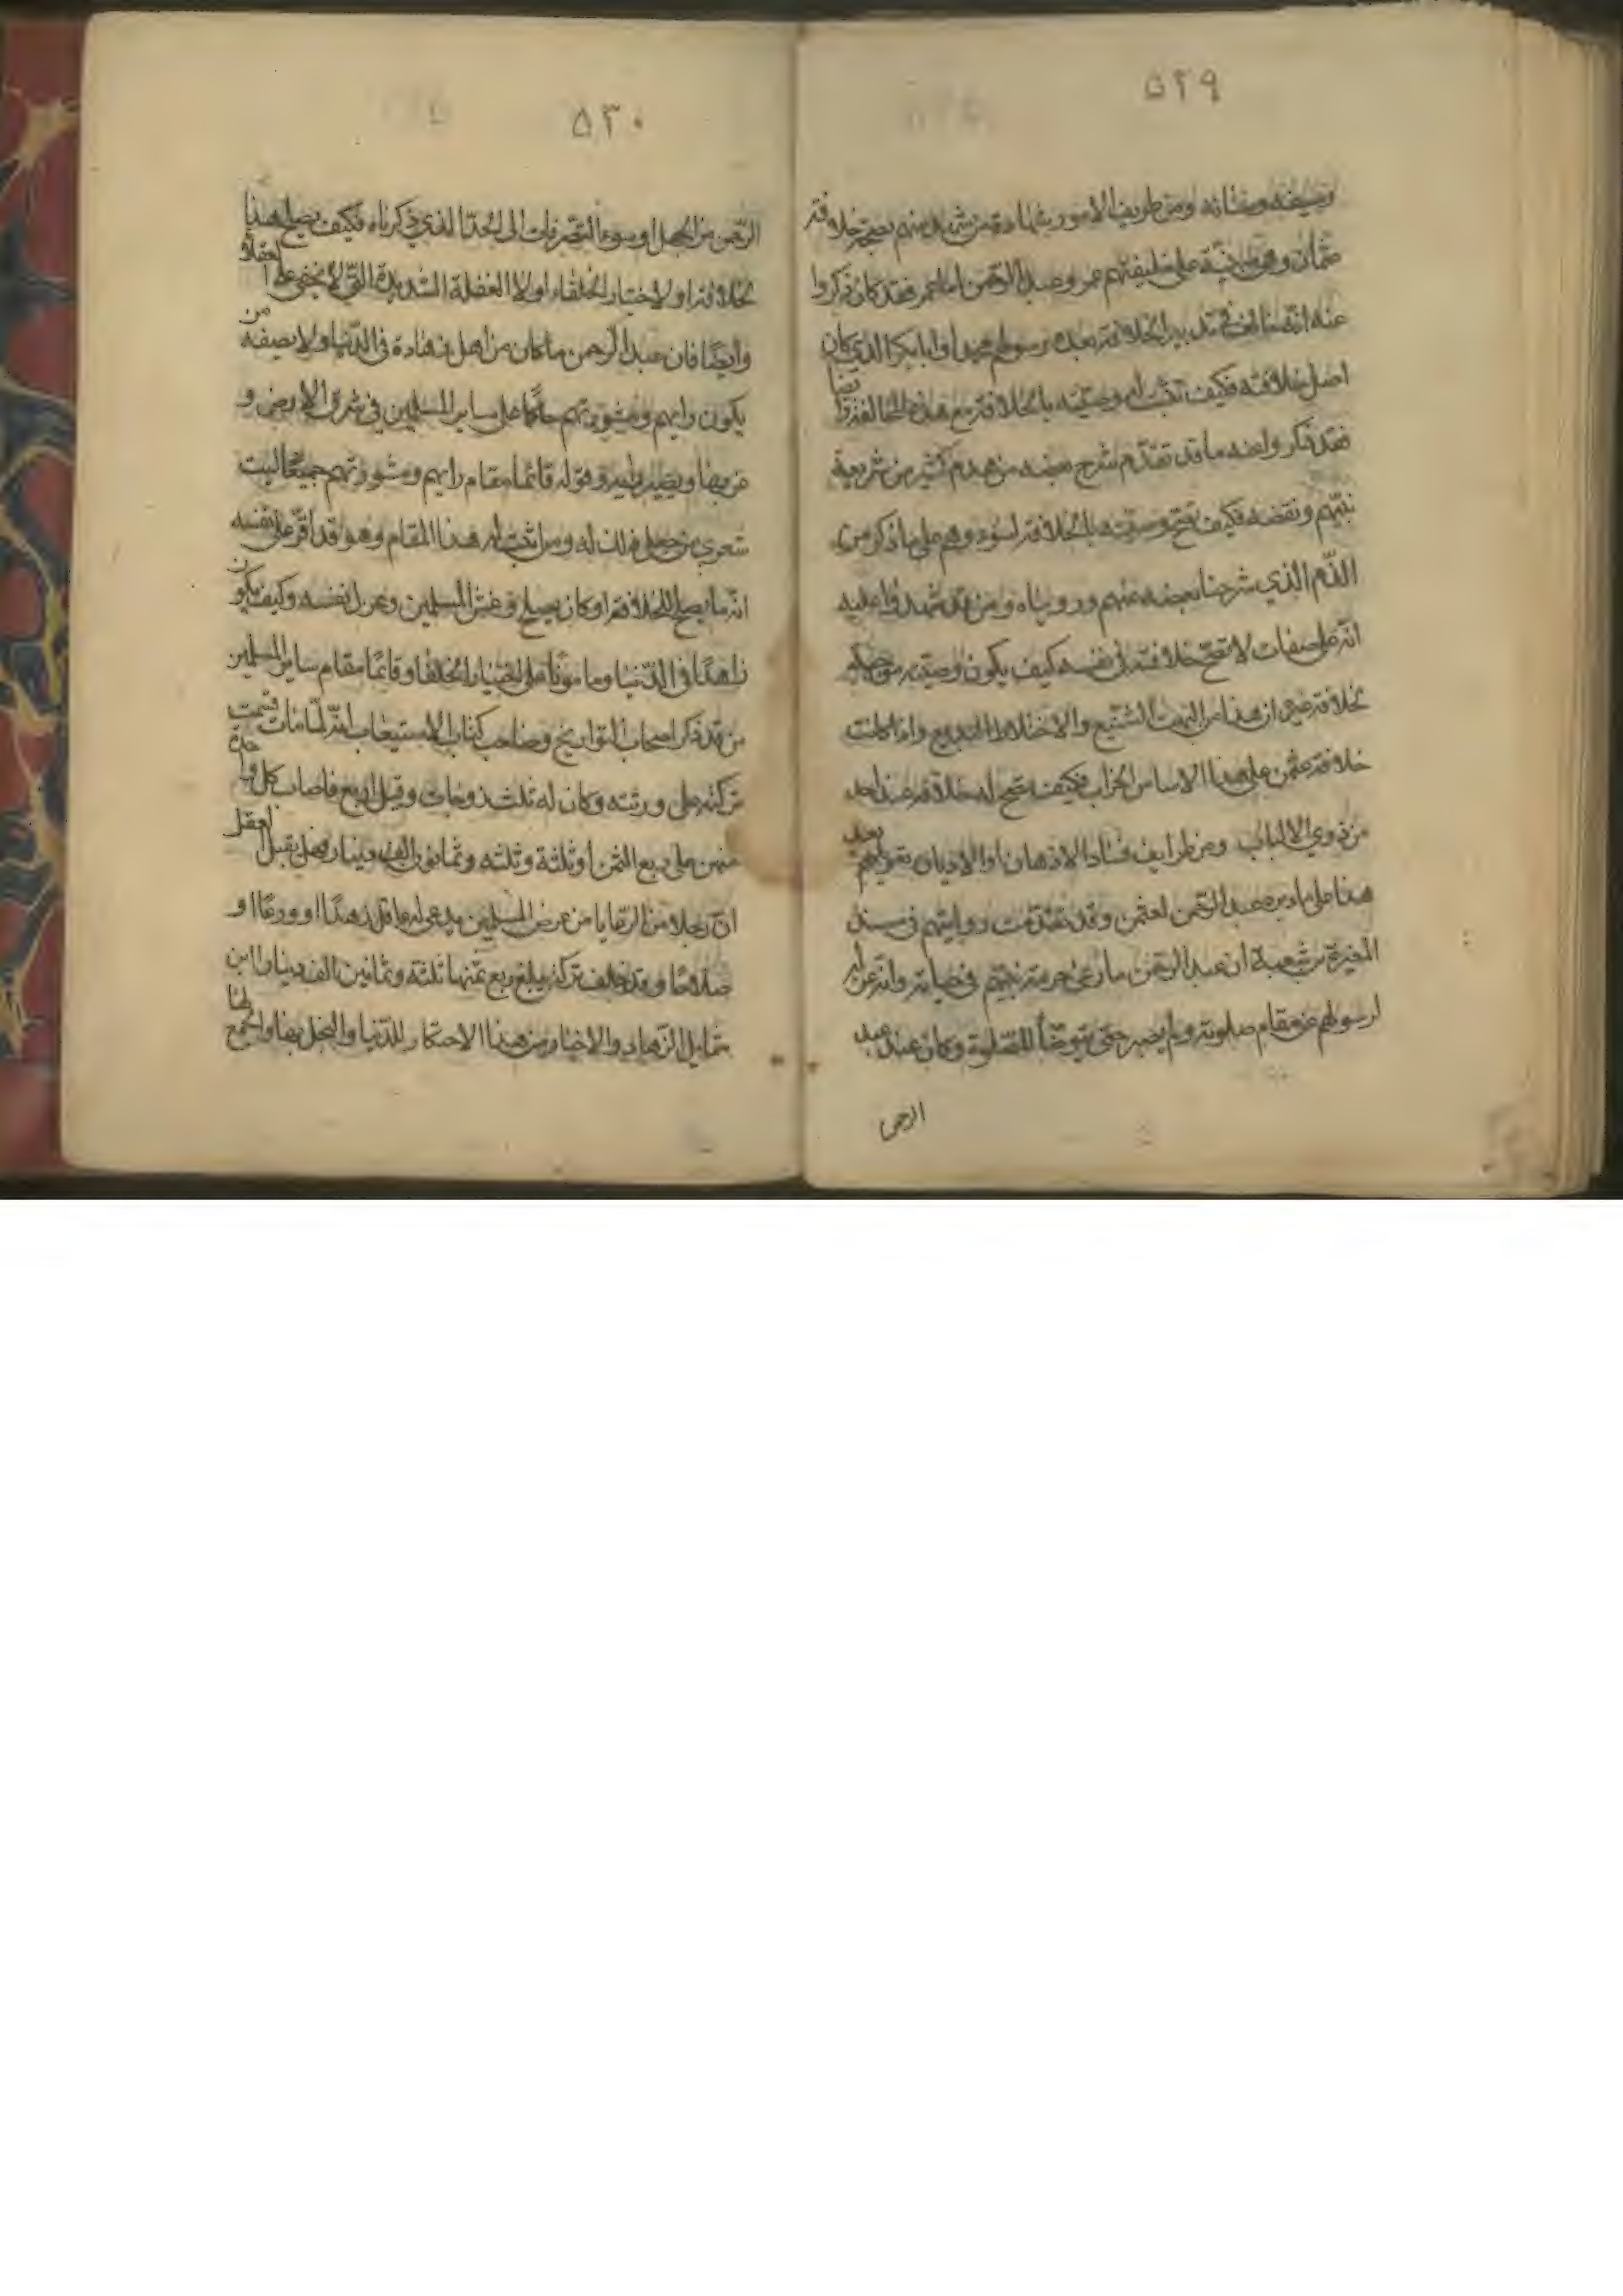 ٥٢٩
وصفه وصفاته ومن طريف الامور شهادة من شهد منهم بصحة خلافة
عثمان وهي مبنية على خليفتهم عمر وعبد الرحمن اما عمر فقد كان ذكروا
عنه انه خالف في تدبير الخلافة بعده رسولهم محمدا وابا بكر الذي كان
اصل خلافته فكيف تثبت له وصيته بالخلافة مع هذه المخالفة وايضا
فقد ذكروا عنه ما قد تقدم شرح بعضه من هدم كثير من شريعة
نبيهم ونقضه فكيف تصح وصيته بالخلافة لسوده وهم على ما ذكر من
الذم الذي شرحنا بعضه عنهم ورويناه ومن قد شهدوا عليه
انه على صفات لا تصح خلافته في نفسه كيف يكون وصيته موصلة
لخلافة غيره ان هذا من البهت الشنيع والاختلاط البديع واذا كانت
خلافة عثمن على هذا الاساس الخراب فكيف تصح له خلافة عند احد
من ذوي الالباب ومن طرايف فساد الاذهان او الاديان تعويلهم بعد
هذا على ما دبره عبد الرحمن لعثمن وقد تقدمت روايتهم في مسند
المغيرة بن شعبة ان عبد الرحمن ما رعى حرمة نبيهم في حياته وانه عزل
لرسولهم عن مقام صلوته ولم يصبر حتى يتوضأ للصلوة وكان عند عبد
الرحمن
٥٣٠
الرحمن من الجهل او سوء التصرفات الى الحد الذي ذكرناه فكيف يصلح هذا
لخلافة او لاختيار الخلفاء لولا الغفلة الشديدة التي لا تخفى على العقلاء
وايضا فان عبد الرحمن ما كان من اهل زهادة في الدنيا ولا بصفة من
يكون رايهم ومشورتهم حاكما على ساير المسلمين في شرق الارض و
غربها ويصير رايه وقوله قائما مقام رايهم ومشورتهم جميعا ليت
شعري من جعل ذلك له ومن اثبت له هذا المقام وهو قد اقر على نفسه
انه ما يصلح للخلافة او كان يصلح وغش المسلمين وعزل نفسه وكيف يكون
زاهدا في الدنيا ومامونا على اختيار الخلفا وقائما مقام ساير المسلمين
من قد ذكر اصحاب التواريخ وصاحب كتاب الاستيعاب انه لما مات قسمت
تركته على ورثته وكان له ثلث زوجات وقيل اربع فاصاب كل واحدة
منهن على ربع الثمن او ثلثه وثلثة وثمانون الف دينار فهل يقبل العقل
ان رجلا من الرعايا من عرض المسلمين يدعي له عاقل زهدا او ورعا او
صلاحا وقد خلف تركة مبلغ ربع ثمنها ثلثة وثمانين الف دينار اين
شمايل الزهاد والاخيار من هذا الاحتكار للدنيا والبخل بها والجمع لها